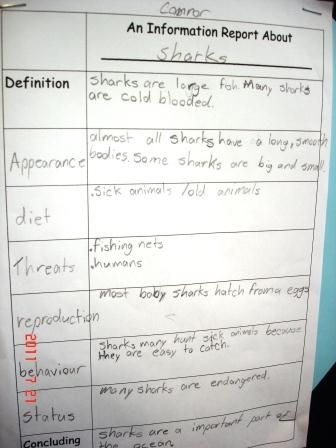 Connor
An Information Report About
sharks
Definition
sharks are large fish. Many sharks
are cold blooded.
Appearance
almost all sharks have a long, smooth
bodies. Some sharks are big and small.
diet
.sick animals /old animals
Threats
.fishing nets
.humans
reproduction
most baby sharks hatch from a eggs
behaviour
sharks many hunt sick animals because
they are easy to catch.
Status
many sharks are endangered.
Concluding
sharks are a important part of
the ocean.
2011 7 21